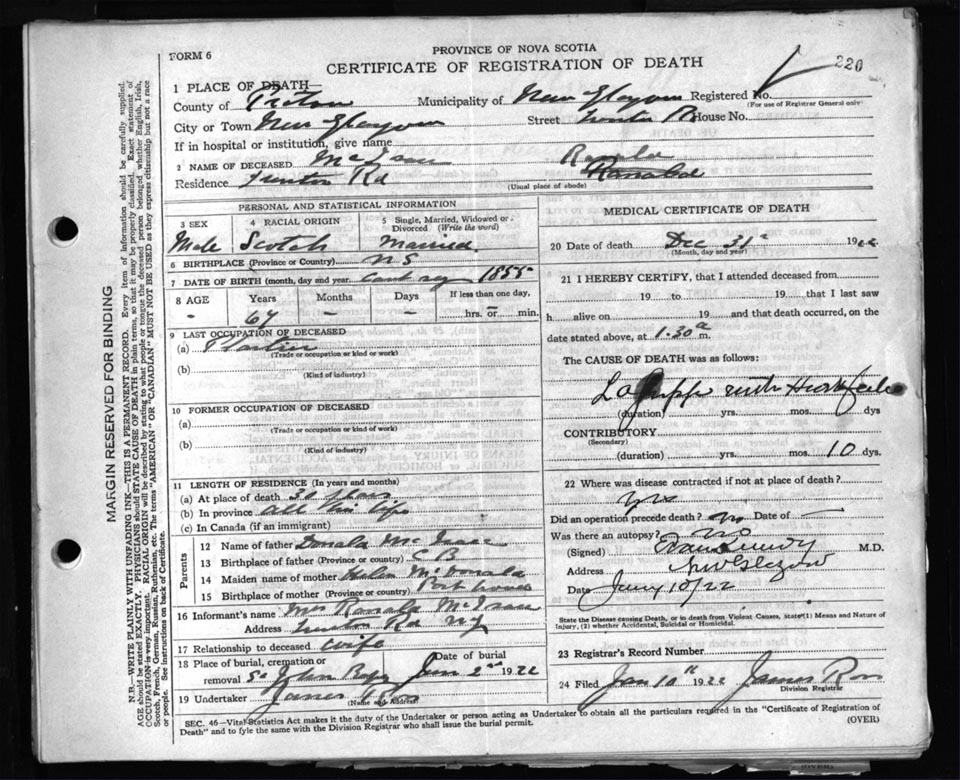 PROVINCE OF NOVA SCOTIA
FORM 6
CERTIFICATE OF REGISTRATION OF DEATH
220
1 PLACE OF DEATH—
County of Pictou Municipality of New Glasgow Registered No.
(For use of Registrar General only
City or Town New Glasgow Street Trenton Rd House No.
If in hospital or institution, give name
2 NAME OF DECEASED McIsaac Ranald
Residence Trenton Rd Ranald
(Usual place of abode)
PERSONAL AND STATISTICAL INFORMATION
3 SEX 4 RACIAL ORIGIN 5 Single, Married, Widowed or Divorced (Write the word)
Male Scotch Married
6 BIRTHPLACE (Province or Country) N S
7 DATE OF BIRTH (month, day and year. Cant say 1855
8 AGE Years Months Days If less than one day,
- 67 - - hrs. or min.
9 LAST OCCUPATION OF DECEASED
(a)
(Trade or occupation or kind or work)
(b)
(Kind of industry)
10 FORMER OCCUPATION OF DECEASED
(a)
(Trade or occupation or kind of work)
(b)
(Kind of industry)
11 LENGTH OF RESIDENCE (In years and months)
(a) At place of death 30 years
(b) In province all his life
(c) In Canada (if an immigrant)
Parents
12 Name of father Donald McIsaac
13 Birthplace of father (Province or Country) C B
14 Maiden name of mother Helen McDonald
15 Birthplace of mother (Province or country) Port Hood
16 Informant's name Mrs Ranald McIsaac
Address Trenton Rd N G
17 Relationship to deceased wife
18 Place of burial, cremation or Date of burial
removal Jan 2nd 1922
19 Undertaker James Ross
(Name and Address)
MEDICAL CERTIFICATE OF DEATH
20 Date of death Dec 31st 19
(Month, day and year)
21 I HEREBY CERTIFY, that I attended deceased from
19 to 19 that I last saw
h alive on 19 and that death occurred, on the
date stated above, at 1.30 a m.
The CAUSE OF DEATH was as follows:
La Grippe with Heart failure
(duration) yrs. mos. dys
CONTRIBUTORY
(Secondary)
(duration) yrs. mos. 10 dys.
22 Where was disease contracted if not at place of death?
yes
Did an operation precede death? no Date of —
Was there an autopsy? no
(Signed) M.D.
Address New Glasgow
Date Jany 10/22
State the Disease causing Death, or in death from Violent Causes, State (1) Means and Nature of
Injury, (2) whether Accidental, Suicidal or Homicidal.
23 Registrar's Record Number
24 Filed Jan 10th 1922 James Ross
Division Registrar
SEC. 46—Vital Statistics Act makes it the duty of the Undertaker or person acting as Undertaker to obtain all the particulars required in the "Certificate of Registration of
Death" and to fyle the same with the Division Registrar who shall issue the burial permit.
(OVER)
MARGIN RESERVED FOR BINDING
N.B.—WRITE PLAINLY WITH UNFADING INK—THIS IS A PERMANENT RECORD. Every item of information should be carefully supplied.
AGE should be stated EXACTLY. PHYSICIANS should STATE CAUSE OF DEATH in plain terms, so that it may be properly classified. Exact statement of
OCCUPATION is very important. RACIAL ORIGIN will be described by stating to what people or tongue the deceased person belonged whether English, Irish,
Scotch, French, German, Russian, Ruthenian, etc. The terms "AMERICAN" OR "CANADIAN" MUST NOT BE USED as they express citizenship but not a race
or people. See instructions on back of Certificate.